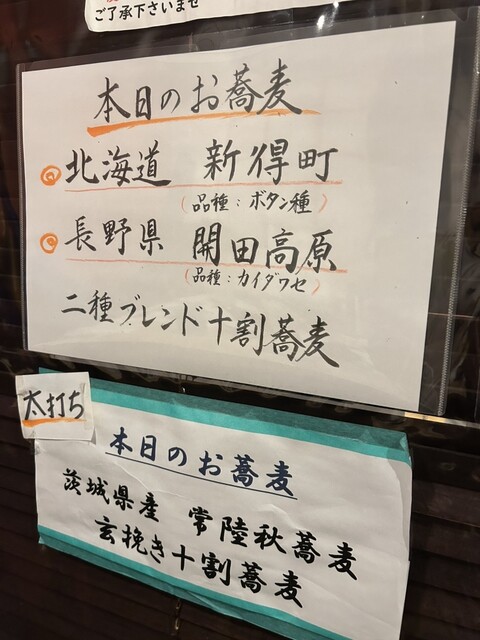 ご了承下さいませ
本日のお蕎麦
◎北海道 新得町
(品種:ボタン種)
◎長野県 開田高原
(品種:カイダワセ)
二種ブレンド十割蕎麦
太打ち
本日のお蕎麦
茨城県産 常陸秋蕎麦
玄挽き十割蕎麦